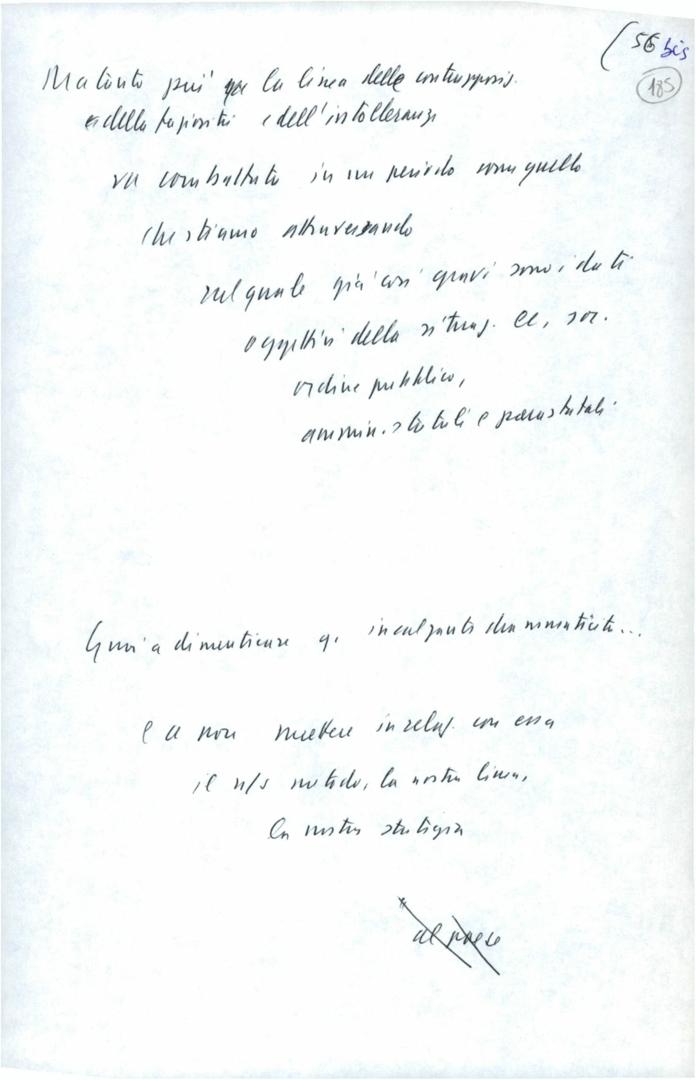 (56 bis
185
Ma tanto più qe la linea delle contrapposiz.
e della faziosità e dell'intolleranza
va combattuta in un periodo come quello
che stiamo attraversando
nel quale già così gravi sono i dati
oggettivi della situaz. ec, soc.
ordine pubblico,
ammin. statali e parastatali
Guai a dimenticare q. incalzante drammaticità...
e a non mettere in relaz. con essa
il n/s metodo, la nostra linea,
la nostra strategia
al paese